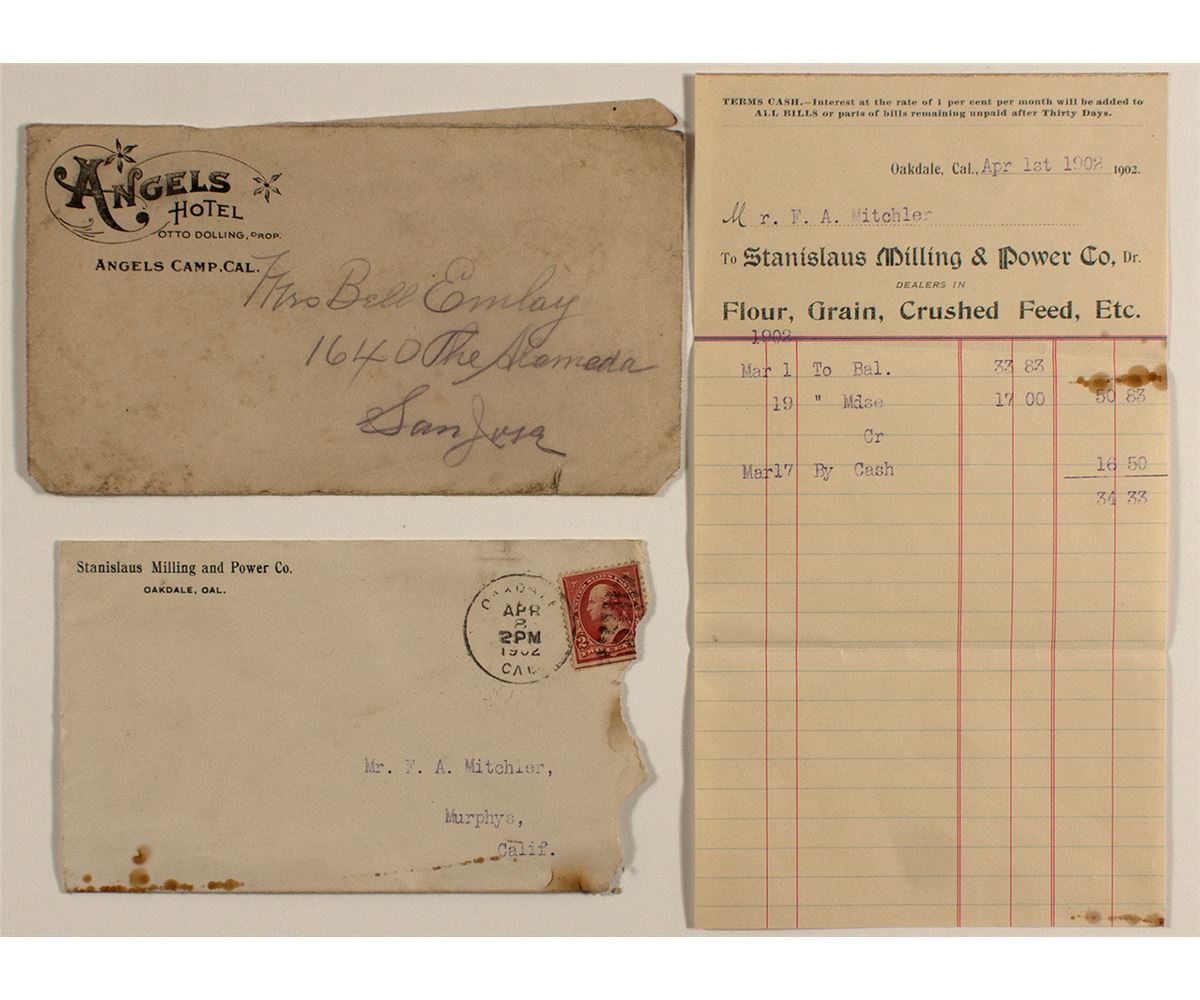 ANGELS
HOTEL
OTTO DOLLING, PROP.
ANGELS CAMP. CAL.
Mrs Bell Emlay
1640 The Alameda
San Jose
Stanislaus Milling and Power Co.
OAKDALE, CAL.
OAKDALE
APR
8
2PM
1902
CAL
UNITED STATES POSTAGE
2
Mr. F. A. Mitchler,
Murphys,
Calif.
TERMS CASH.—Interest at the rate of 1 per cent per month will be added to
ALL BILLS or parts of bills remaining unpaid after Thirty Days.
Oakdale, Cal., Apr 1st 1902 1902.
Mr. F. A. Mitchler
To Stanislaus Milling & Power Co, Dr.
DEALERS IN
Flour, Grain, Crushed Feed, Etc.
1902
Mar 1 To Bal. 33 83
19 " Mdse 17 00 50 83
Cr
Mar17 By Cash 16 50
34 33